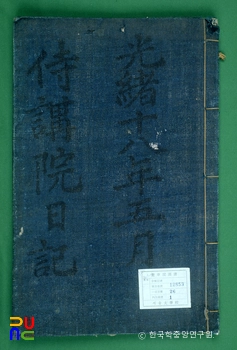 光緖十八年五月
侍講院日記
ⓒ 한국학중앙연구원